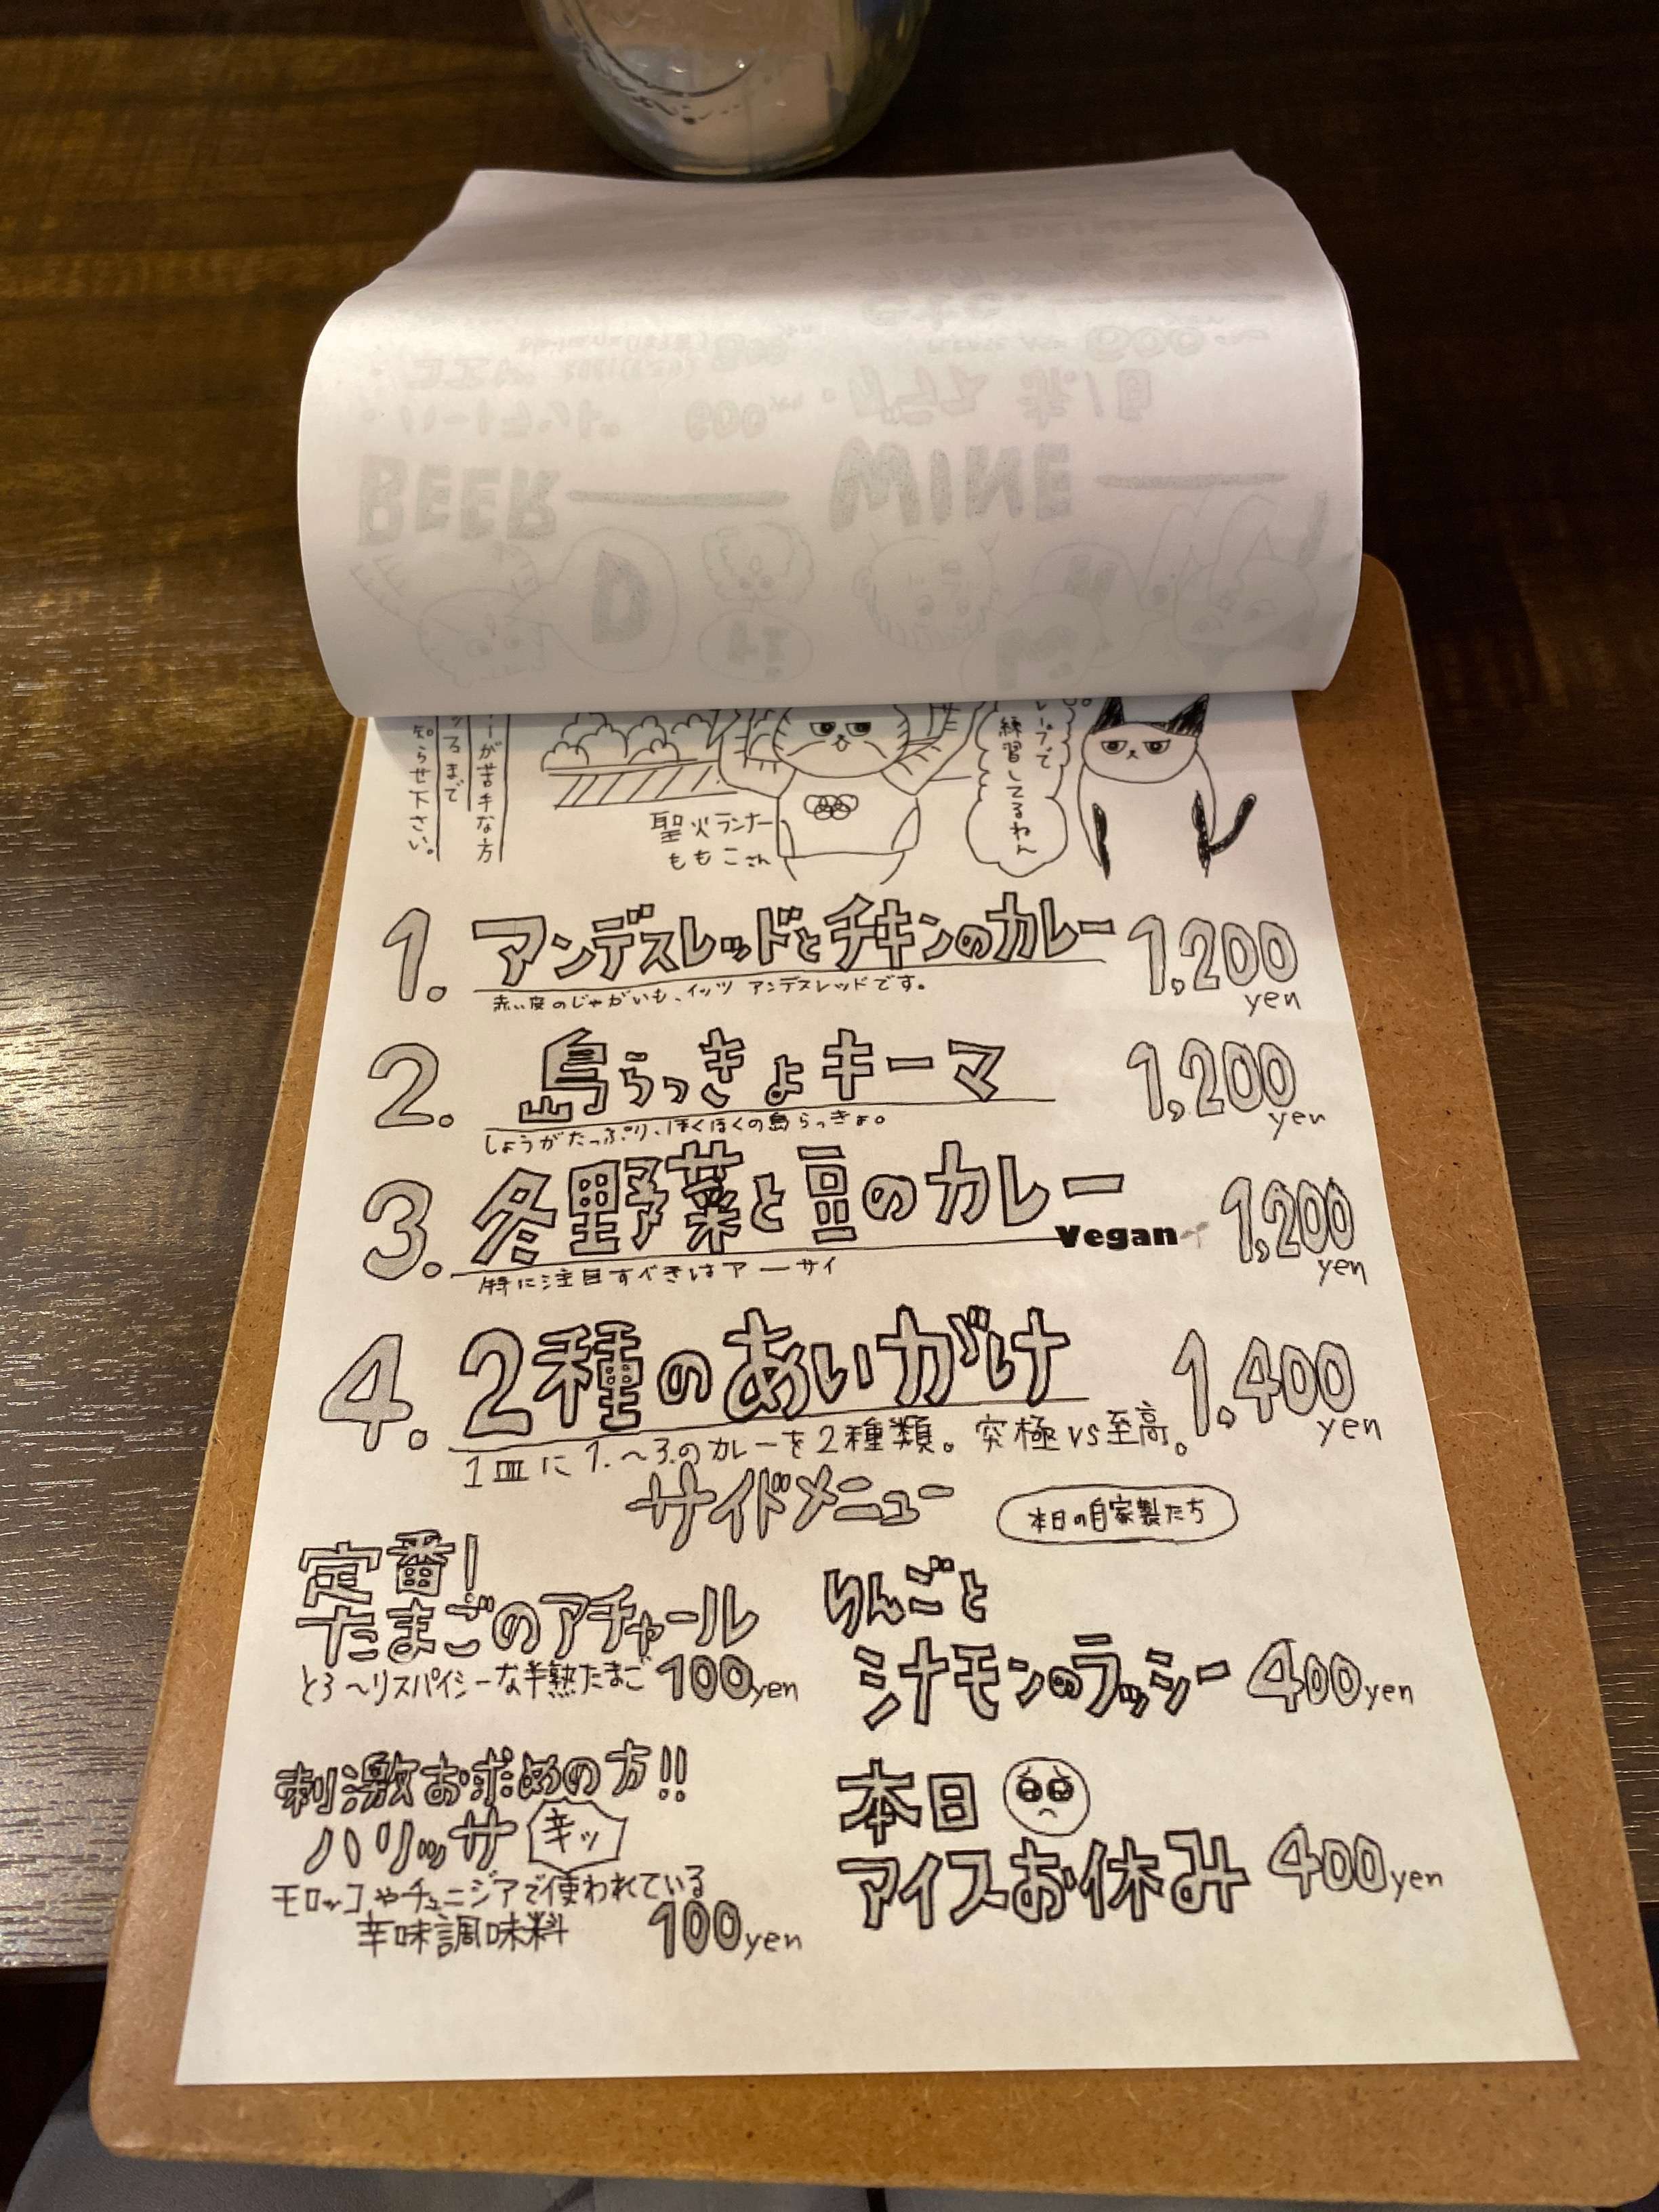 BEER
WINE
600
が苦手な方
まで
知らせ下さい。
聖火ランナー
ももこさん
練習してるわん
1. アンデスレッドとチキンのカレー 1,200 yen
赤い皮のじゃがいも、イッツ アンデスレッドです。
2. 島らっきょキーマ 1,200 yen
しょうがたっぷり、ほくほくの島らっきょ。
3. 冬野菜と豆のカレー Vegan 1,200 yen
特に注目すべきはアーサイ
4. 2種のあいがけ 1.400 yen
1皿に1.〜3.のカレーを2種類。究極vs至高。
サイドメニュー 本日の自家製たち
定番!
たまごのアチャール
とろ〜リスパイシーな半熟たまご 100yen
刺激お求めの方!!
ハリッサ 辛ッ
モロッコやチュニジアで使われている
辛味調味料 100yen
りんごと
シナモンのラッシー 400yen
本日
アイスお休み 400yen